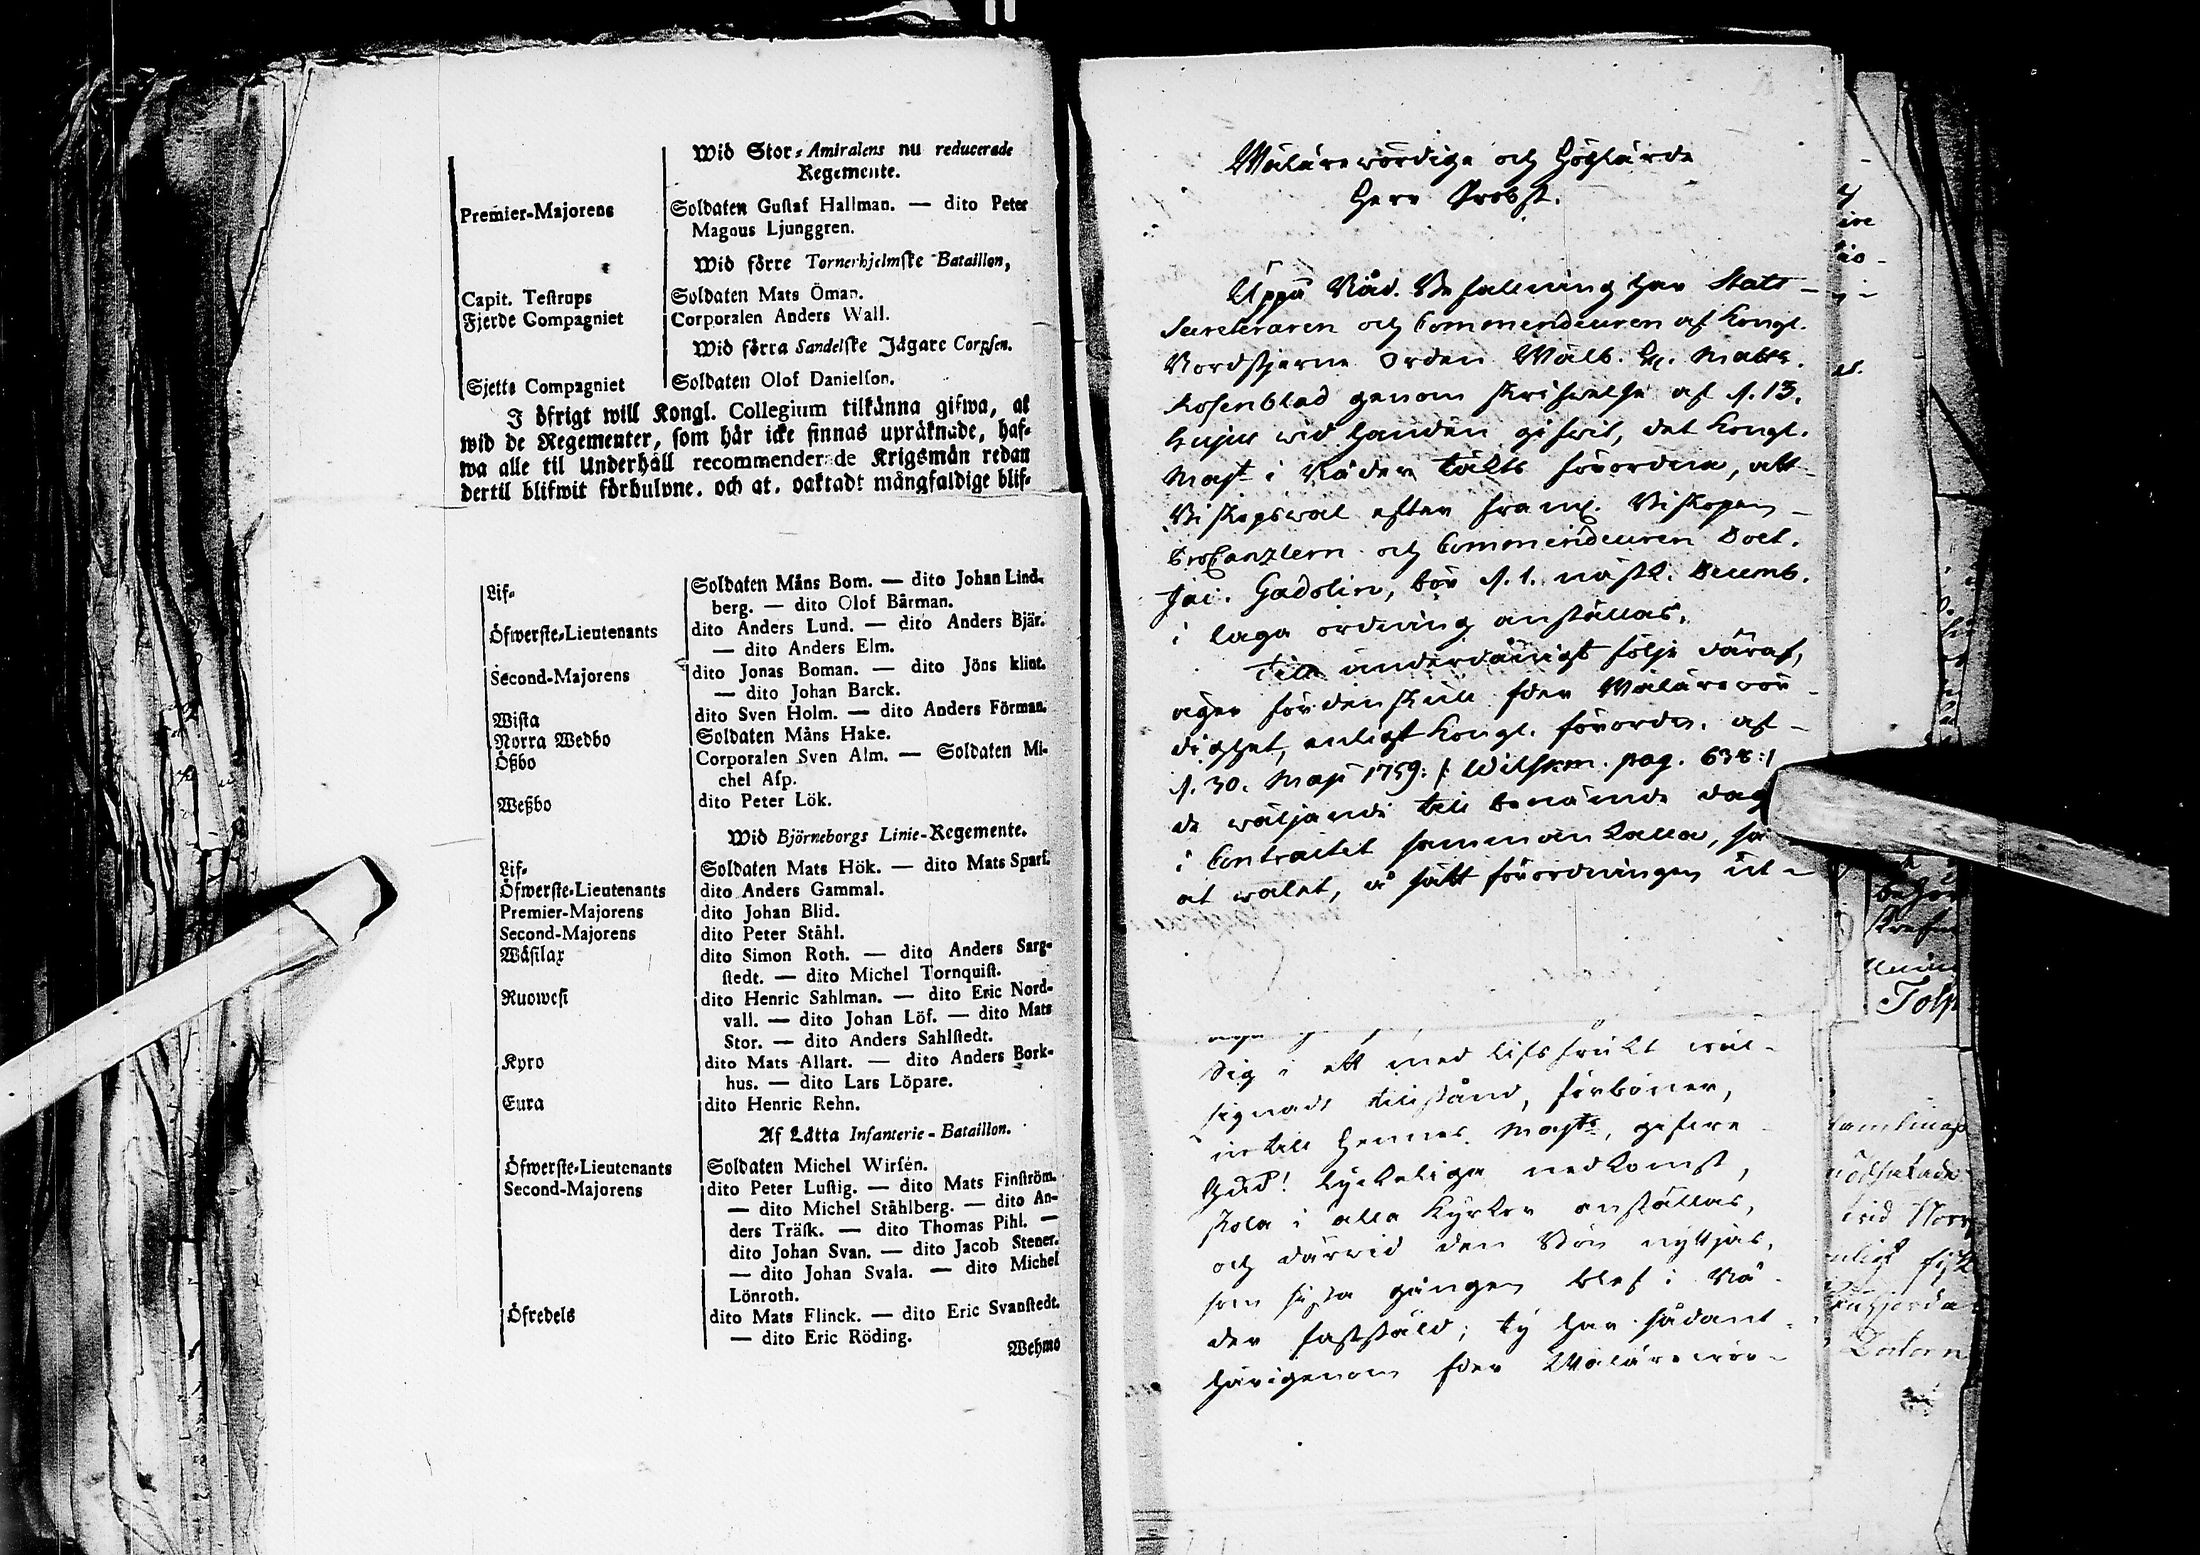 Wid Stor-Amiralens nu reducerade
Regemente.
Premier-Majorens Soldaten Gustaf Hallman. — dito Peter
Magnus Ljunggren.
Wid förre Tornerhjelmske Bataillon,
Capit. Testrups Soldaten Mats Öman.
Fjerde Compagniet Corporalen Anders Wall.
Wid förra Sandelske Jägare Corpsen.
Sjette Compagniet Soldaten Olof Danielson.
I öfrigt will Kongl. Collegium tilkänna gifwa, at
wid de Regementer, som här icke finnas upräknade, haf-
wa alle til Underhåll recommenderade Krigsmän redan
dertil blifwit förhulpne, och at, oaktadt mångfaldige blif-
Lif- Soldaten Måns Bom. — dito Johan Lind-
berg. — dito Olof Bärman.
Öfwerste-Lieutenants dito Anders Lund. — dito Anders Bjär.
— dito Anders Elm.
Second-Majorens dito Jonas Boman. — dito Jöns klint.
— dito Johan Barck.
Wista dito Sven Holm. — dito Anders Förman.
Norra Wedbo Soldaten Måns Hake.
Ößbo Corporalen Sven Alm. — Soldaten Mi-
chel Asp.
Weßbo dito Peter Lök.
Wid Björneborgs Linie-Regemente.
Lif- Soldaten Mats Hök. — dito Mats Sparf.
Öfwerste-Lieutenants dito Anders Gammal.
Premier-Majorens dito Johan Blid.
Second-Majorens dito Peter Ståhl.
Wäsilax dito Simon Roth. — dito Anders Sarg-
stedt. — dito Michel Tornquist.
Ruowesi dito Henric Sahlman. — dito Eric Nord-
vall. — dito Johan Löf. — dito Mats
Stor. — dito Anders Sahlstedt.
Kyro dito Mats Allart. — dito Anders Bork-
hus. — dito Lars Löpare.
Eura dito Henric Rehn.
Af Lätta Infanterie-Bataillon.
Öfwerste-Lieutenants Soldaten Michel Wirsén.
Second-Majorens dito Peter Lustig. — dito Mats Finström.
— dito Michel Ståhlberg. — dito An-
ders Träsk. — dito Thomas Pihl. —
dito Johan Svan. — dito Jacob Stener.
— dito Johan Svala. — dito Michel
Lönroth.
Öfredels dito Mats Flinck. — dito Eric Svanstedt.
— dito Eric Röding.
Wehmo
Wälärewördige och Höglärde
Herr Probst.
Uppå Nåd. Befallning har Stats-
Secreteraren och Commendeuren af Kongl.
Nordstjerne Orden Wälb. H. Matts.
Rosenblad genom skrifwelse af d. 13.
hujus wid handen gifwit, det Kongl.
Majt i Nåder täkts förordna, att
Biskopswal efter framl. Biskopen
ProCanzlern och Commendeuren Doct.
Jac. Gadolin, bör d. 1. nästk. Decemb.
i laga ordning anställas.
Till underdånigt följe däraf,
äger fördenskull Eder Wälärewör-
dighet, enligt Kongl. förordn. af
d. 30. Maji 1759: /: Wilskm. pag. 638:/
de wäljande till benämde dag
i Contractet sammankalla, så
at walet, å sätt förordningen ut-
Sig i ett med lifsfrukt wäl-
signadt tillstånd, förböner,
intill Hennes Majts, gifwe
Gud! lyckeliga nedkomst,
skola i alla Kyrkor anställas,
och därwid den Bön nyttjas,
som sista gången blef i Nå-
der fastställd; ty har sådant
härigenom Eder Wälärewör-